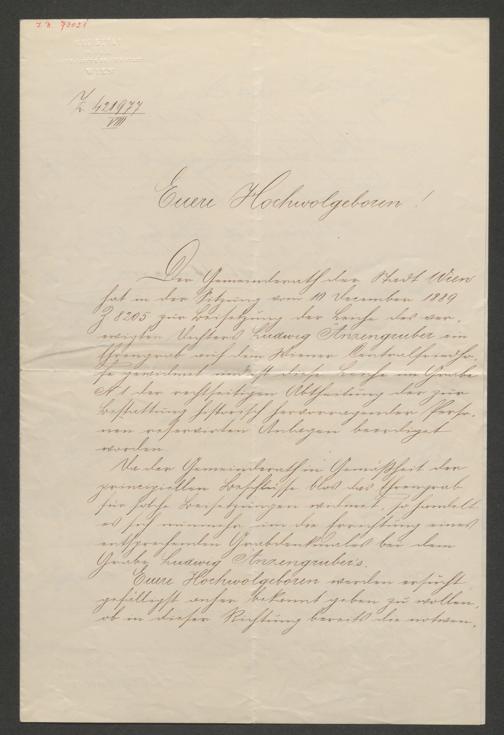 I. N. 79028
WIEN
Z. 421977
VIII
Euere Hochwolgeboren!
Der Gemeinderath der Stadt Wien
hat in der Sitzung vom 10 December 1889
Z 8205 zur Beisetzung der Leiche des ver-
ewigten Dichters Ludwig Anzengruber ein
Ehrengrab auf dem Wiener Centralfriedho-
fe gewidmet und ist diese Leiche im Grabe
No 1 der rechtseitigen Abtheilung der zur
Bestattung historisch hervorragender Perso-
nen reservirten Anlagen beerdiget
worden.
Da der Gemeinderath in Gemäßheit der
principiellen Beschlüsse blos das Ehrengrab
für solche Beisetzungen widmet, so handelt
es sich nunmehr um die Errichtung eines
entsprechenden Grabdenkmales bei dem
Grabe Ludwig Anzengruber's.
Euere Hochwolgeboren werden ersucht
gefälligst anher bekannt geben zu wollen,
ob in dieser Richtung bereits die notwen-